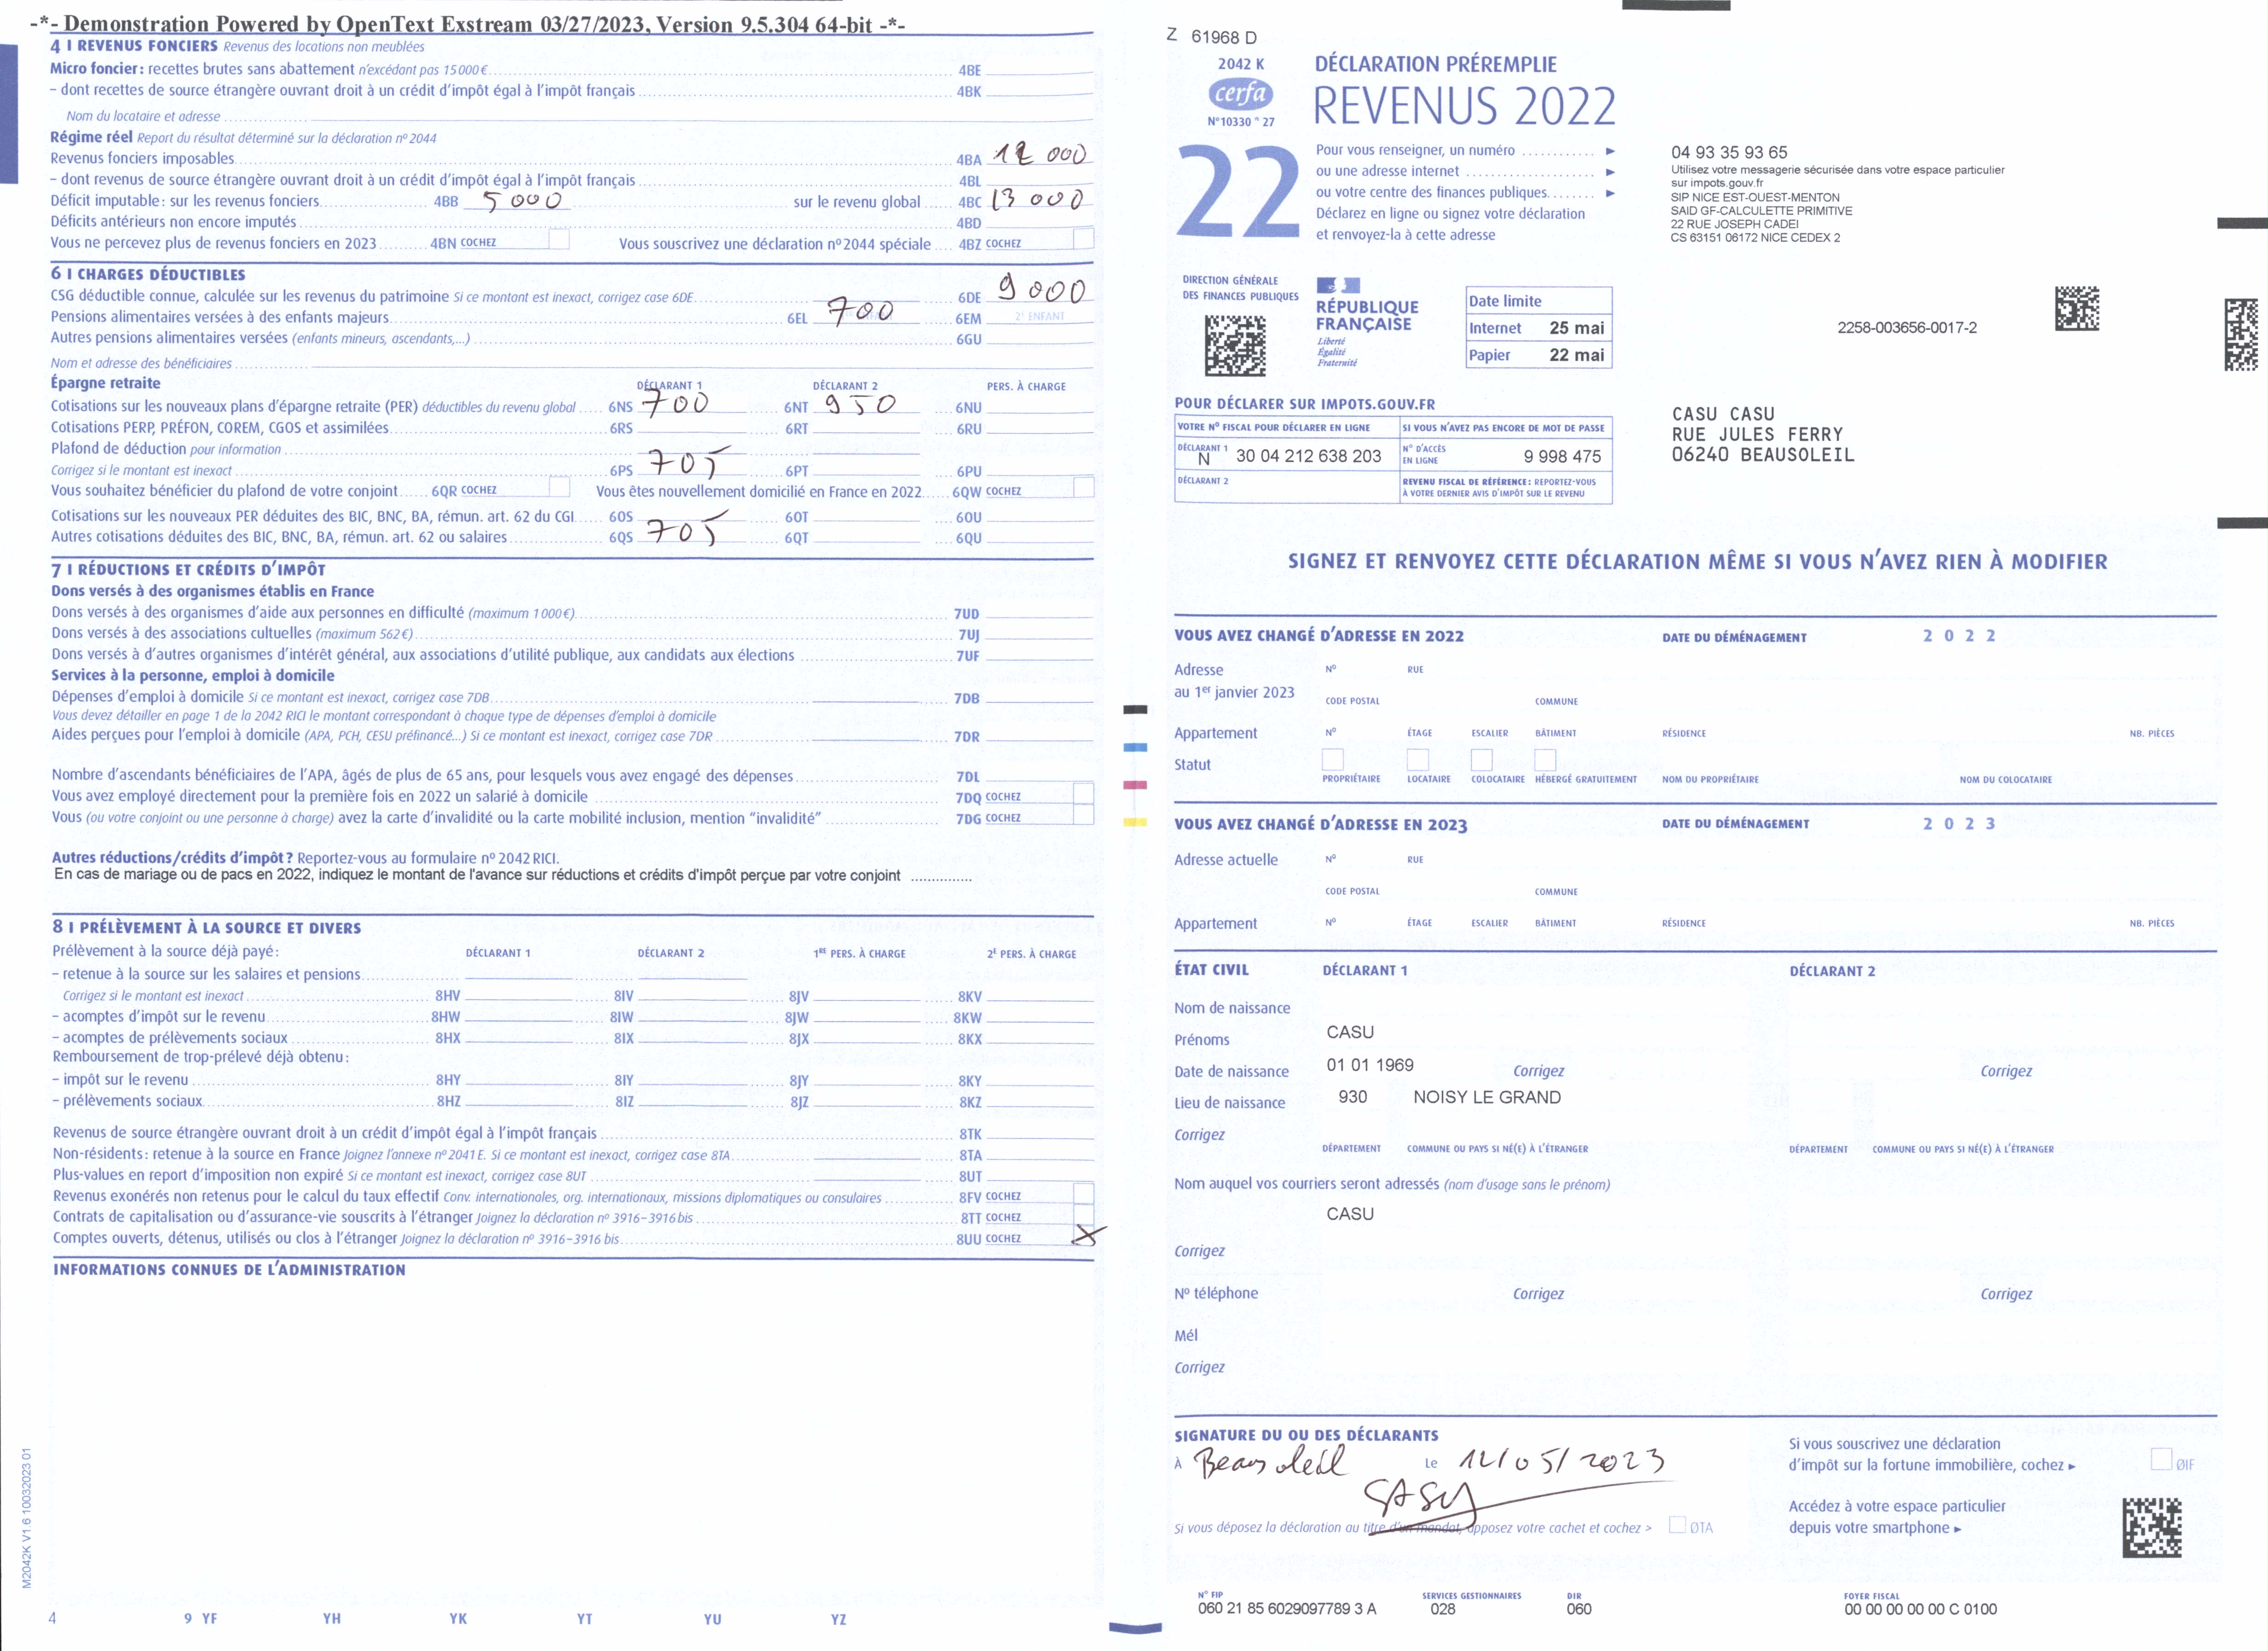 -*- Demonstration Powered by OpenText Exstream 03/27/2023, Version 9.5.304 64-bit -*-
4 I REVENUS FONCIERS Revenus des locations non meublées
Micro foncier : recettes brutes sans abattement n'excédant pas 15000 € 4BE
– dont recettes de source étrangère ouvrant droit à un crédit d'impôt égal à l'impôt français 4BK
Nom du locataire et adresse
Régime réel Report du résultat déterminé sur la déclaration nº 2044
Revenus fonciers imposables 4BA 12 000
– dont revenus de source étrangère ouvrant droit à un crédit d'impôt égal à l'impôt français 4BL
Déficit imputable : sur les revenus fonciers 4BB 5 000 sur le revenu global 4BC 13 000
Déficits antérieurs non encore imputés 4BD
Vous ne percevez plus de revenus fonciers en 2023 4BN COCHEZ Vous souscrivez une déclaration nº 2044 spéciale 4BZ COCHEZ
6 I CHARGES DÉDUCTIBLES
CSG déductible connue, calculée sur les revenus du patrimoine Si ce montant est inexact, corrigez case 6DE 6DE 9 000
Pensions alimentaires versées à des enfants majeurs 6EL 700 6EM 2E ENFANT
Autres pensions alimentaires versées (enfants mineurs, ascendants,...) 6GU
Nom et adresse des bénéficiaires
Épargne retraite DÉCLARANT 1 DÉCLARANT 2 PERS. À CHARGE
Cotisations sur les nouveaux plans d'épargne retraite (PER) déductibles du revenu global 6NS 700 6NT 950 6NU
Cotisations PERP, PRÉFON, COREM, CGOS et assimilées 6RS 6RT 6RU
Plafond de déduction pour information
Corrigez si le montant est inexact 6PS 705 6PT 6PU
Vous souhaitez bénéficier du plafond de votre conjoint 6QR COCHEZ Vous êtes nouvellement domicilié en France en 2022 6QW COCHEZ
Cotisations sur les nouveaux PER déduites des BIC, BNC, BA, rémun. art. 62 du CGI 6OS 6OT 6OU
Autres cotisations déduites des BIC, BNC, BA, rémun. art. 62 ou salaires 6QS 705 6QT 6QU
7 I RÉDUCTIONS ET CRÉDITS D'IMPÔT
Dons versés à des organismes établis en France
Dons versés à des organismes d'aide aux personnes en difficulté (maximum 1 000 €) 7UD
Dons versés à des associations cultuelles (maximum 562 €) 7UJ
Dons versés à d'autres organismes d'intérêt général, aux associations d'utilité publique, aux candidats aux élections 7UF
Services à la personne, emploi à domicile
Dépenses d'emploi à domicile Si ce montant est inexact, corrigez case 7DB 7DB
Vous devez détailler en page 1 de la 2042 RICI le montant correspondant à chaque type de dépenses d'emploi à domicile
Aides perçues pour l'emploi à domicile (APA, PCH, CESU préfinancé...) Si ce montant est inexact, corrigez case 7DR 7DR
Nombre d'ascendants bénéficiaires de l'APA, âgés de plus de 65 ans, pour lesquels vous avez engagé des dépenses 7DL
Vous avez employé directement pour la première fois en 2022 un salarié à domicile 7DQ COCHEZ
Vous (ou votre conjoint ou une personne à charge) avez la carte d'invalidité ou la carte mobilité inclusion, mention “invalidité” 7DG COCHEZ
Autres réductions/crédits d'impôt ? Reportez-vous au formulaire nº 2042 RICI.
En cas de mariage ou de pacs en 2022, indiquez le montant de l'avance sur réductions et crédits d'impôt perçue par votre conjoint ..............
8 I PRÉLÈVEMENT À LA SOURCE ET DIVERS
Prélèvement à la source déjà payé : DÉCLARANT 1 DÉCLARANT 2 1RE PERS. À CHARGE 2E PERS. À CHARGE
– retenue à la source sur les salaires et pensions
Corrigez si le montant est inexact 8HV 8IV 8JV 8KV
– acomptes d'impôt sur le revenu 8HW 8IW 8JW 8KW
– acomptes de prélèvements sociaux 8HX 8IX 8JX 8KX
Remboursement de trop-prélevé déjà obtenu :
– impôt sur le revenu 8HY 8IY 8JY 8KY
– prélèvements sociaux 8HZ 8IZ 8JZ 8KZ
Revenus de source étrangère ouvrant droit à un crédit d'impôt égal à l'impôt français 8TK
Non-résidents : retenue à la source en France Joignez l'annexe nº 2041 E. Si ce montant est inexact, corrigez case 8TA 8TA
Plus-values en report d'imposition non expiré Si ce montant est inexact, corrigez case 8UT 8UT
Revenus exonérés non retenus pour le calcul du taux effectif Conv. internationales, org. internationaux, missions diplomatiques ou consulaires 8FV COCHEZ
Contrats de capitalisation ou d'assurance-vie souscrits à l'étranger Joignez la déclaration nº 3916–3916 bis 8TT COCHEZ
Comptes ouverts, détenus, utilisés ou clos à l'étranger Joignez la déclaration nº 3916–3916 bis 8UU COCHEZ X
INFORMATIONS CONNUES DE L'ADMINISTRATION
M2042K V1.6 10032023 01
4 9 YF YH YK YT YU YZ
Z 61968 D
2042 K
cerfa
N° 10330 * 27
DÉCLARATION PRÉREMPLIE
REVENUS 2022
22
Pour vous renseigner, un numéro ........... ►
ou une adresse internet ........... ►
ou votre centre des finances publiques ....... ►
Déclarez en ligne ou signez votre déclaration
et renvoyez-la à cette adresse
04 93 35 93 65
Utilisez votre messagerie sécurisée dans votre espace particulier
sur impots.gouv.fr
SIP NICE EST-OUEST-MENTON
SAID GF-CALCULETTE PRIMITIVE
22 RUE JOSEPH CADEI
CS 63151 06172 NICE CEDEX 2
DIRECTION GÉNÉRALE
DES FINANCES PUBLIQUES
RÉPUBLIQUE
FRANÇAISE
Liberté
Égalité
Fraternité
Date limite
Internet 25 mai
Papier 22 mai
2258-003656-0017-2
POUR DÉCLARER SUR IMPOTS.GOUV.FR
VOTRE Nº FISCAL POUR DÉCLARER EN LIGNE SI VOUS N'AVEZ PAS ENCORE DE MOT DE PASSE
DÉCLARANT 1 N 30 04 212 638 203 Nº D'ACCÈS EN LIGNE 9 998 475
DÉCLARANT 2 REVENU FISCAL DE RÉFÉRENCE : REPORTEZ-VOUS
À VOTRE DERNIER AVIS D'IMPÔT SUR LE REVENU
CASU CASU
RUE JULES FERRY
06240 BEAUSOLEIL
SIGNEZ ET RENVOYEZ CETTE DÉCLARATION MÊME SI VOUS N'AVEZ RIEN À MODIFIER
VOUS AVEZ CHANGÉ D'ADRESSE EN 2022 DATE DU DÉMÉNAGEMENT 2 0 2 2
Adresse Nº RUE
au 1er janvier 2023 CODE POSTAL COMMUNE
Appartement Nº ÉTAGE ESCALIER BÂTIMENT RÉSIDENCE NB. PIÈCES
Statut
PROPRIÉTAIRE LOCATAIRE COLOCATAIRE HÉBERGÉ GRATUITEMENT NOM DU PROPRIÉTAIRE NOM DU COLOCATAIRE
VOUS AVEZ CHANGÉ D'ADRESSE EN 2023 DATE DU DÉMÉNAGEMENT 2 0 2 3
Adresse actuelle Nº RUE
CODE POSTAL COMMUNE
Appartement Nº ÉTAGE ESCALIER BÂTIMENT RÉSIDENCE NB. PIÈCES
ÉTAT CIVIL DÉCLARANT 1 DÉCLARANT 2
Nom de naissance
Prénoms CASU
Date de naissance 01 01 1969 Corrigez Corrigez
Lieu de naissance 930 NOISY LE GRAND
Corrigez
DÉPARTEMENT COMMUNE OU PAYS SI NÉ(E) À L'ÉTRANGER DÉPARTEMENT COMMUNE OU PAYS SI NÉ(E) À L'ÉTRANGER
Nom auquel vos courriers seront adressés (nom d'usage sans le prénom)
CASU
Corrigez
Nº téléphone Corrigez Corrigez
Mél
Corrigez
SIGNATURE DU OU DES DÉCLARANTS
À Beausoleil Le 12/05/2023
CASU
Si vous déposez la déclaration au titre d'un mandat, apposez votre cachet et cochez > ØTA
Si vous souscrivez une déclaration
d'impôt sur la fortune immobilière, cochez ► ØIF
Accédez à votre espace particulier
depuis votre smartphone ►
N° FIP SERVICES GESTIONNAIRES DIR FOYER FISCAL
060 21 85 6029097789 3 A 028 060 00 00 00 00 00 C 0100